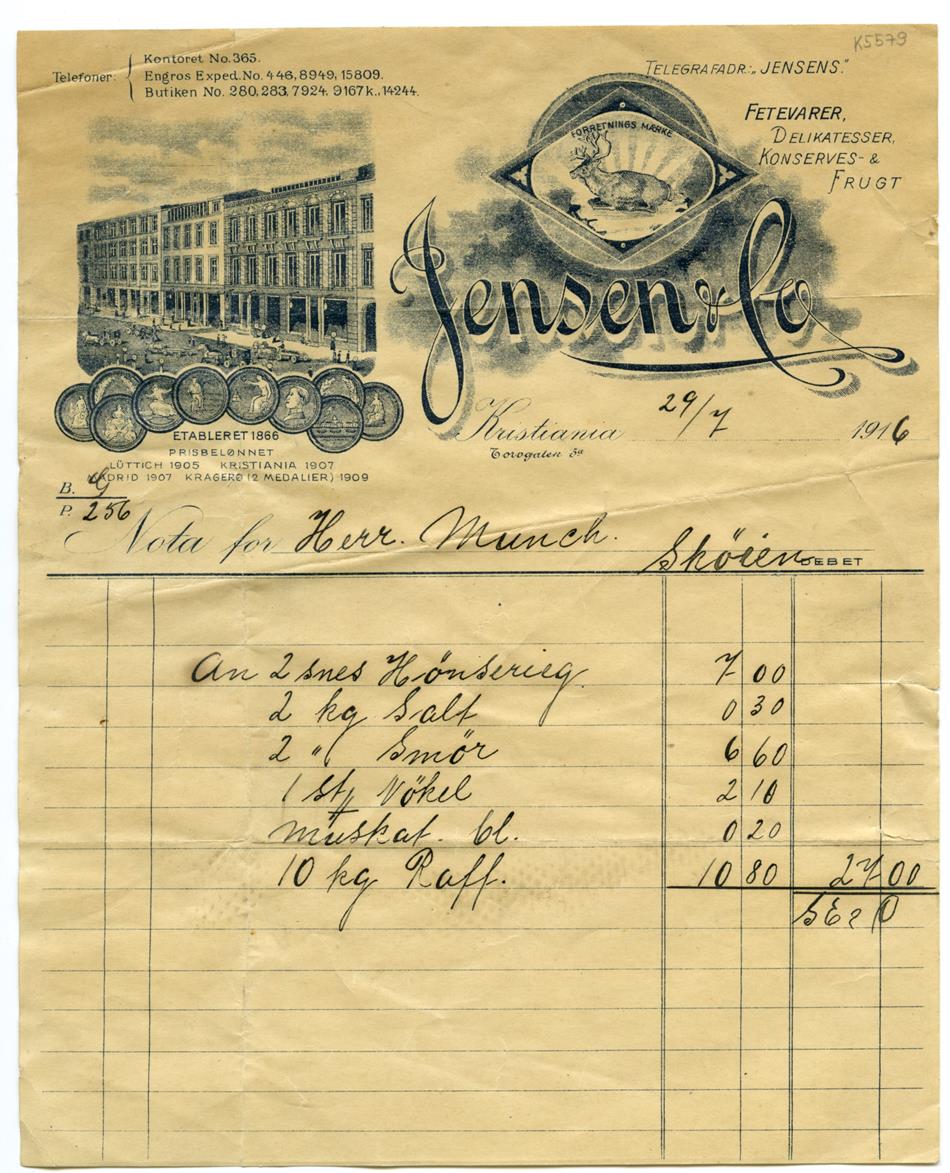 K5579
Telefoner: Kontoret No. 365.
Engros Exped. No. 446, 8949, 15809.
Butiken No. 280, 283, 7924. 9167 k., 14244.
TELEGRAFADR.: „JENSENS."
FETEVARER,
DELIKATESSER,
KONSERVES- &
FRUGT
FORRETNINGS MÆRKE
Jensen & Co
ETABLERET 1866
PRISBELØNNET
LÜTTICH 1905 KRISTIANIA 1907
MADRID 1907 KRAGERØ (2 MEDALIER) 1909
Kristiania 29/7 1916
Torvgaten 5a
B. 9
P. 256
Nota for Herr. Munch.
Sköien DEBET
An 2 snes Hönserieg 7 00
2 kg Salt 0 30
2 " Smör 6 60
1 St Nökel 2 10
Muskat. bl. 0 20
10 kg Raff. 10 80 27 00